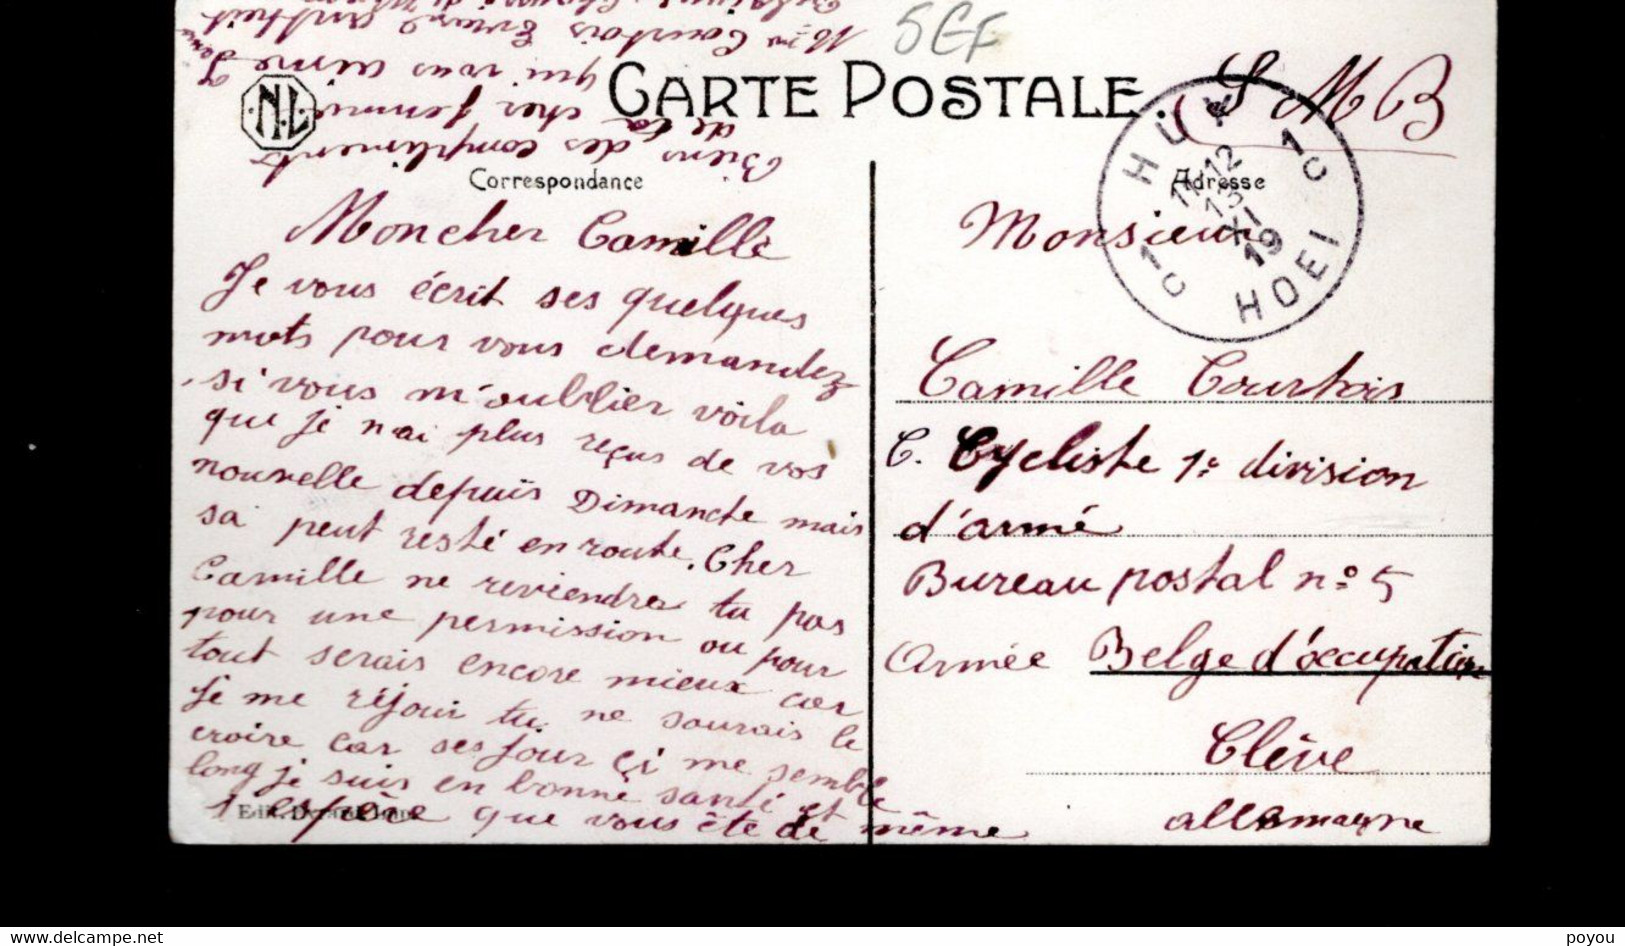 CARTE POSTALE
S M B
5EF
N.L
HUY
1 C
11-12
13
XI
19
1 C
HOEI
Correspondance
Adresse
Mon cher Camille
Je vous écrit ses quelques
mots pour vous demandez
si vous m'oublier voila
que je n'ai plus reçus de vos
nouvelle depuis Dimanche mais
sa peut resté en route. Cher
Camille ne reviendrez tu pas
pour une permission ou pour
tout serais encore mieux car
Je me réjoui tu ne saurais le
croire car ses jour çi me semble
long je suis en bonne santé et
espèce que vous ête de même
Bien des compliments
de ta cher femme
qui vous aime
Courtois
Monsieur
Camille Courtois
C. Cycliste 1e division
d'armé
Bureau postal no 5
Armée Belge d'occupation
Clève
allemagne
www.delcampe.net
poyou